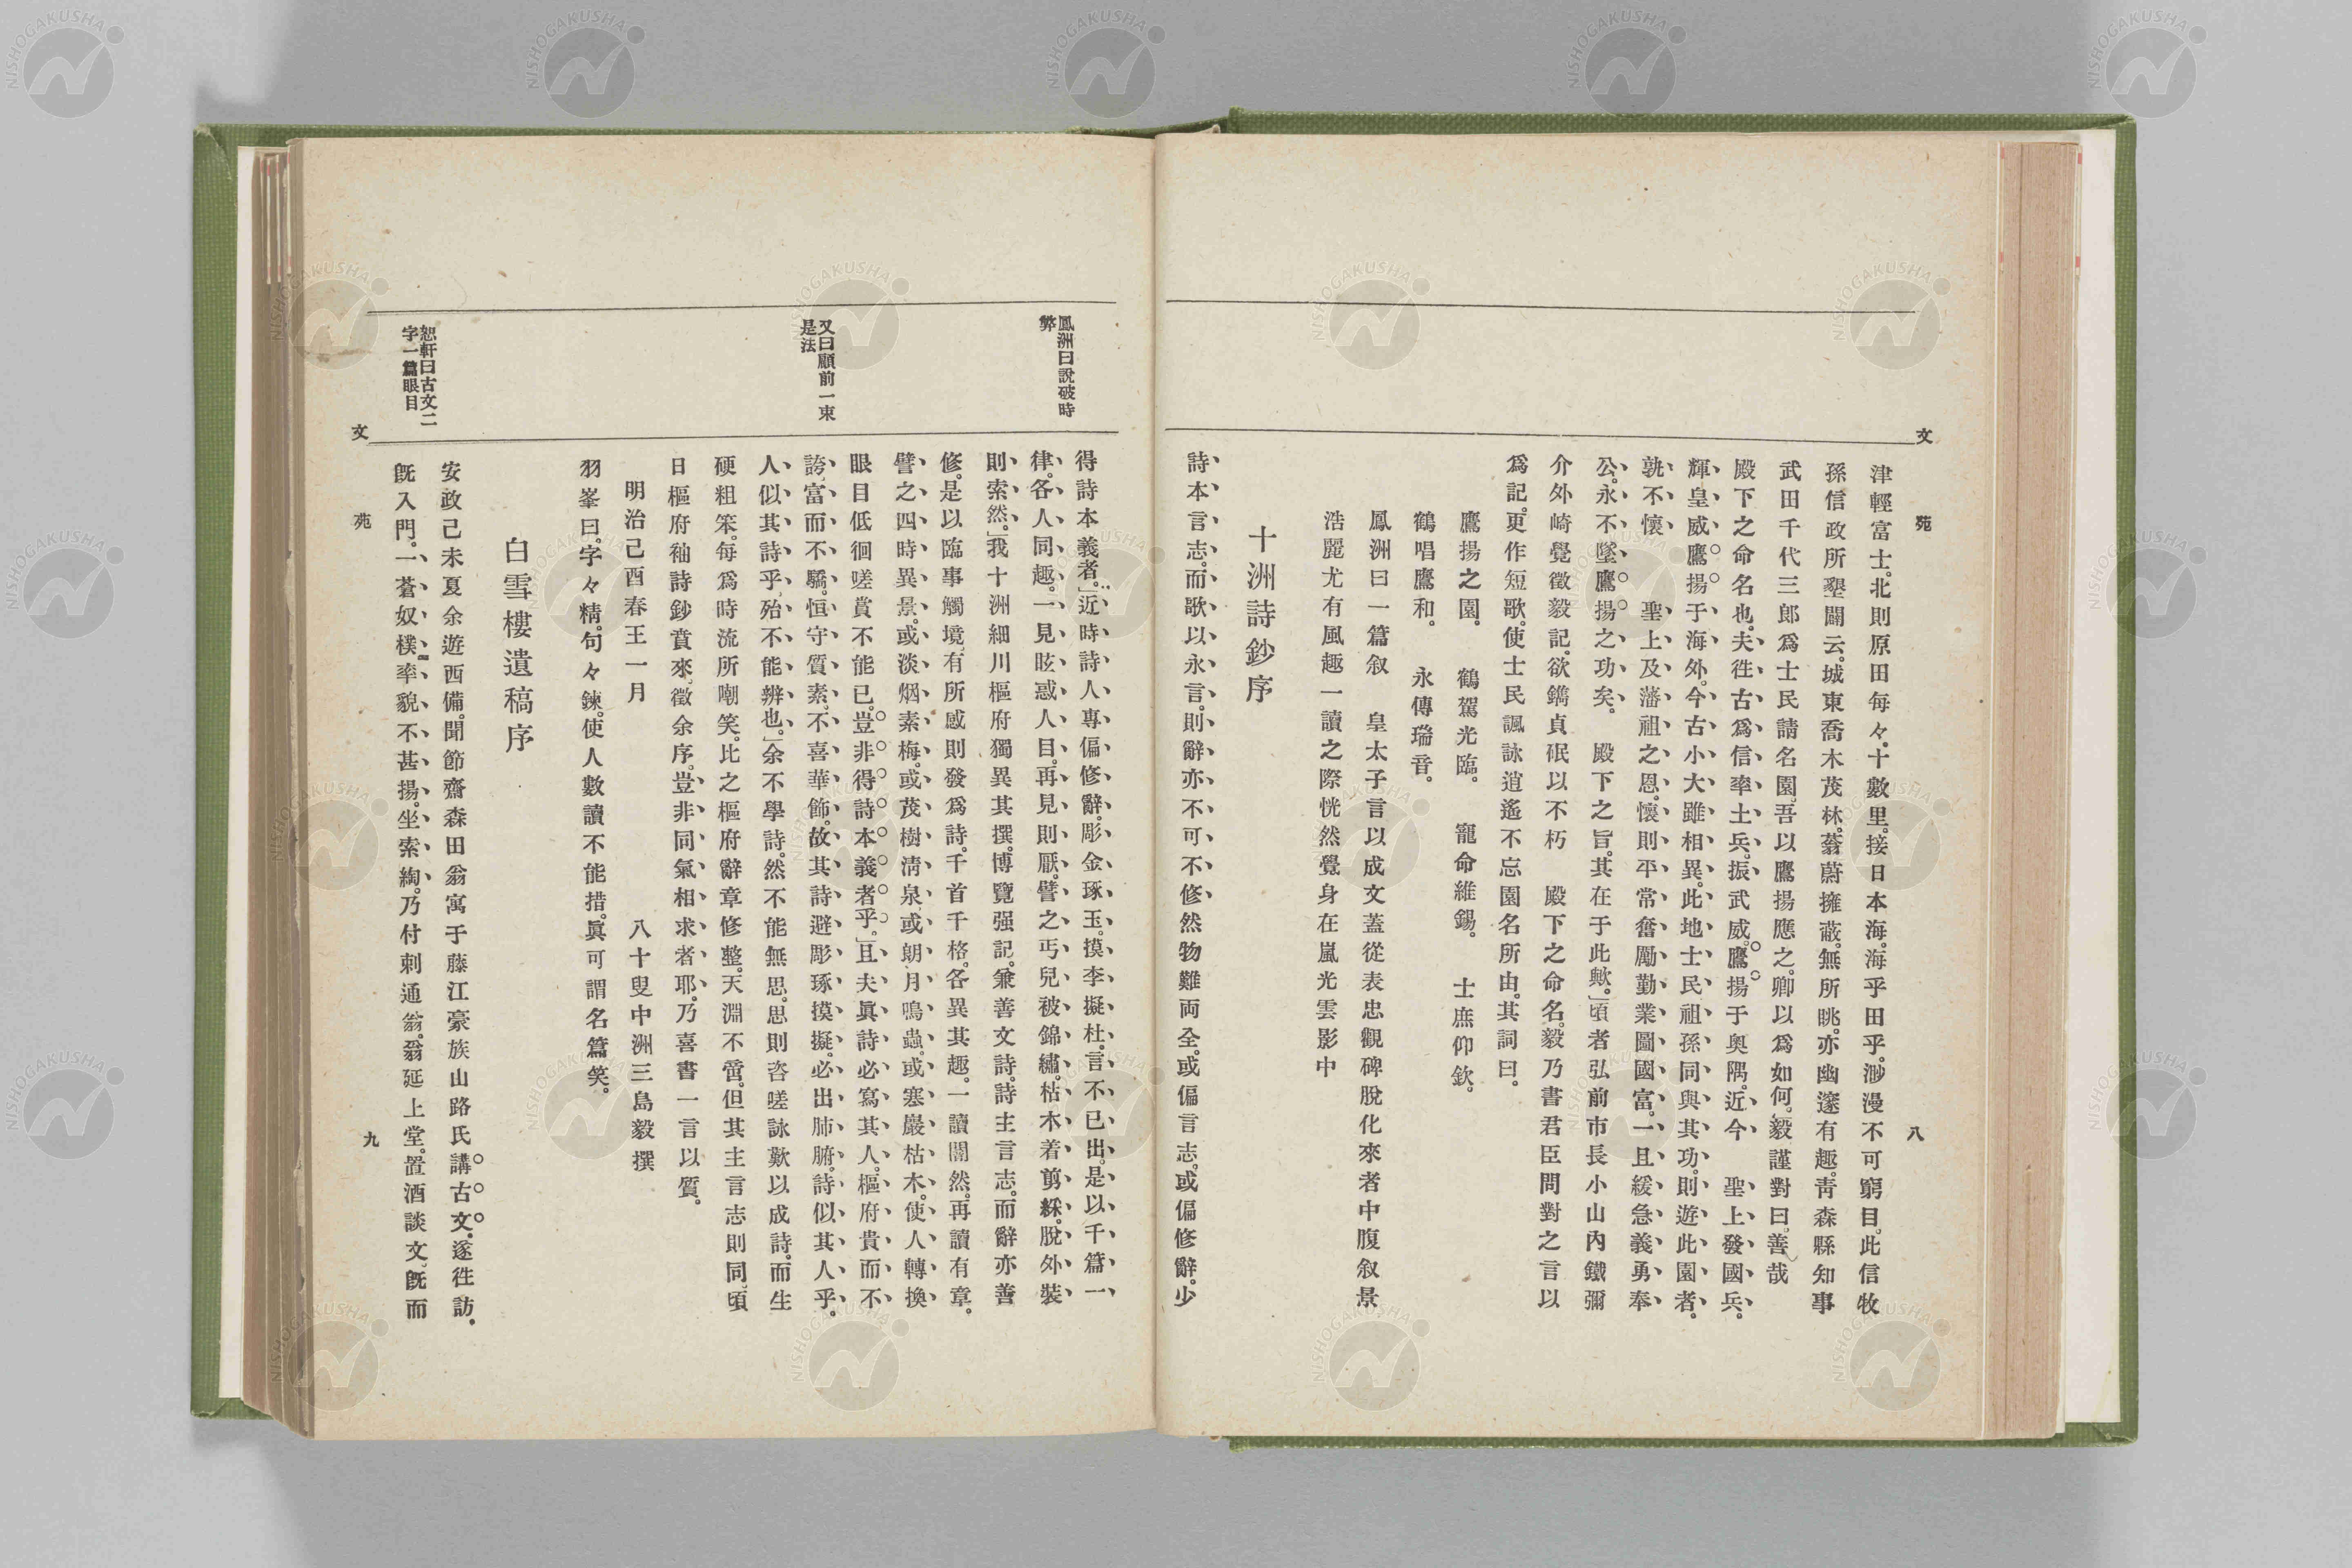 文 苑 八
津輕富士。北則原田每々。十數里。接日本海。海乎田乎。渺漫不可窮目。此信牧
孫信政所墾闢云。城東喬木茂林。蓊蔚擁蔽。無所眺。亦幽邃有趣。靑森縣知事
武田千代三郎爲士民請名園。吾以鷹揚應之。卿以爲如何。毅謹對曰。善哉
殿下之命名也。夫徃古爲信率土兵。振武威。鷹揚于奧隅。近今 聖上發國兵。
輝皇威。鷹揚于海外。今古小大雖相異。此地士民祖孫同與其功。則遊此園者。
孰不懷 聖上及藩祖之恩。懷則平常奮勵勤業圖國富。一且緩急義勇奉
公。永不墜鷹揚之功矣。 殿下之旨。其在于此歟。」頃者弘前市長小山內鐵彌
介外崎覺徵毅記。欲鐫貞珉以不朽 殿下之命名。毅乃書君臣問對之言以
爲記。更作短歌。使士民諷詠道遙不忘園名所由。其詞曰。
鷹揚之園。 鶴駕光臨。 寵命維錫。 士庶仰欽。
鶴唱鷹和。 永傳瑞音。
鳳洲曰一篇叙 皇太子言以成文蓋從表忠觀碑脫化來者中腹叙景
浩麗尤有風趣一讀之際恍然覺身在嵐光雲影中
十洲詩鈔序
詩本言志。而歌以永言。則辭亦不可不修然物難両全。或偏言志。或偏修辭。少
鳳洲曰說破時
弊
又曰顧前一束
是法
恕軒曰古文二
字一篇眼目
得詩本義者。」近時詩人專偏修辭。彫金琢玉。摸李擬杜。言不已出。是以千篇一
律。各人同趣。一見眩惑人目。再見則厭。譬之丐兒被錦繡。枯木着剪綵。脫外裝
則索然。」我十洲細川樞府獨異其撰。博覽强記。兼善文詩。詩主言志。而辭亦善
修。是以臨事觸境。有所感則發爲詩。千首千格。各異其趣。一讀闇然。再讀有章。
譬之四時異景。或淡烟素梅。或茂樹淸泉。或朗月鳴蟲。或寒巖枯木。使人轉換
眼目低徊嗟賞不能已。豈非得詩本義者乎。」且夫眞詩必寫其人。樞府貴而不
誇富而不驕。恒守質素。不喜華飾。故其詩避彫琢摸擬。必出肺腑。詩似其人乎。
人似其詩乎。殆不能辨也。」余不學詩。然不能無思。思則咨嗟詠歎以成詩。而生
硬粗笨。每爲時流所嘲笑。比之樞府辭章修整。天淵不啻。但其主言志則同。頃
日樞府袖詩鈔賁來。徵余序。豈非同氣相求者耶。乃喜書一言以質。
明治己酉春王一月 八十叟中洲三島毅撰
羽峯曰。字々精。句々鍊。使人數讀不能措。眞可謂名篇笑。
白雪樓遺稿序
安政己未夏余遊西備。聞節齋森田翁寓于藤江豪族山路氏講古文。遂徃訪。
既入門。一蒼奴樸率貌不甚揚。坐索綯。乃付刺通翁。翁延上堂。置酒談文。既而
文 苑 九